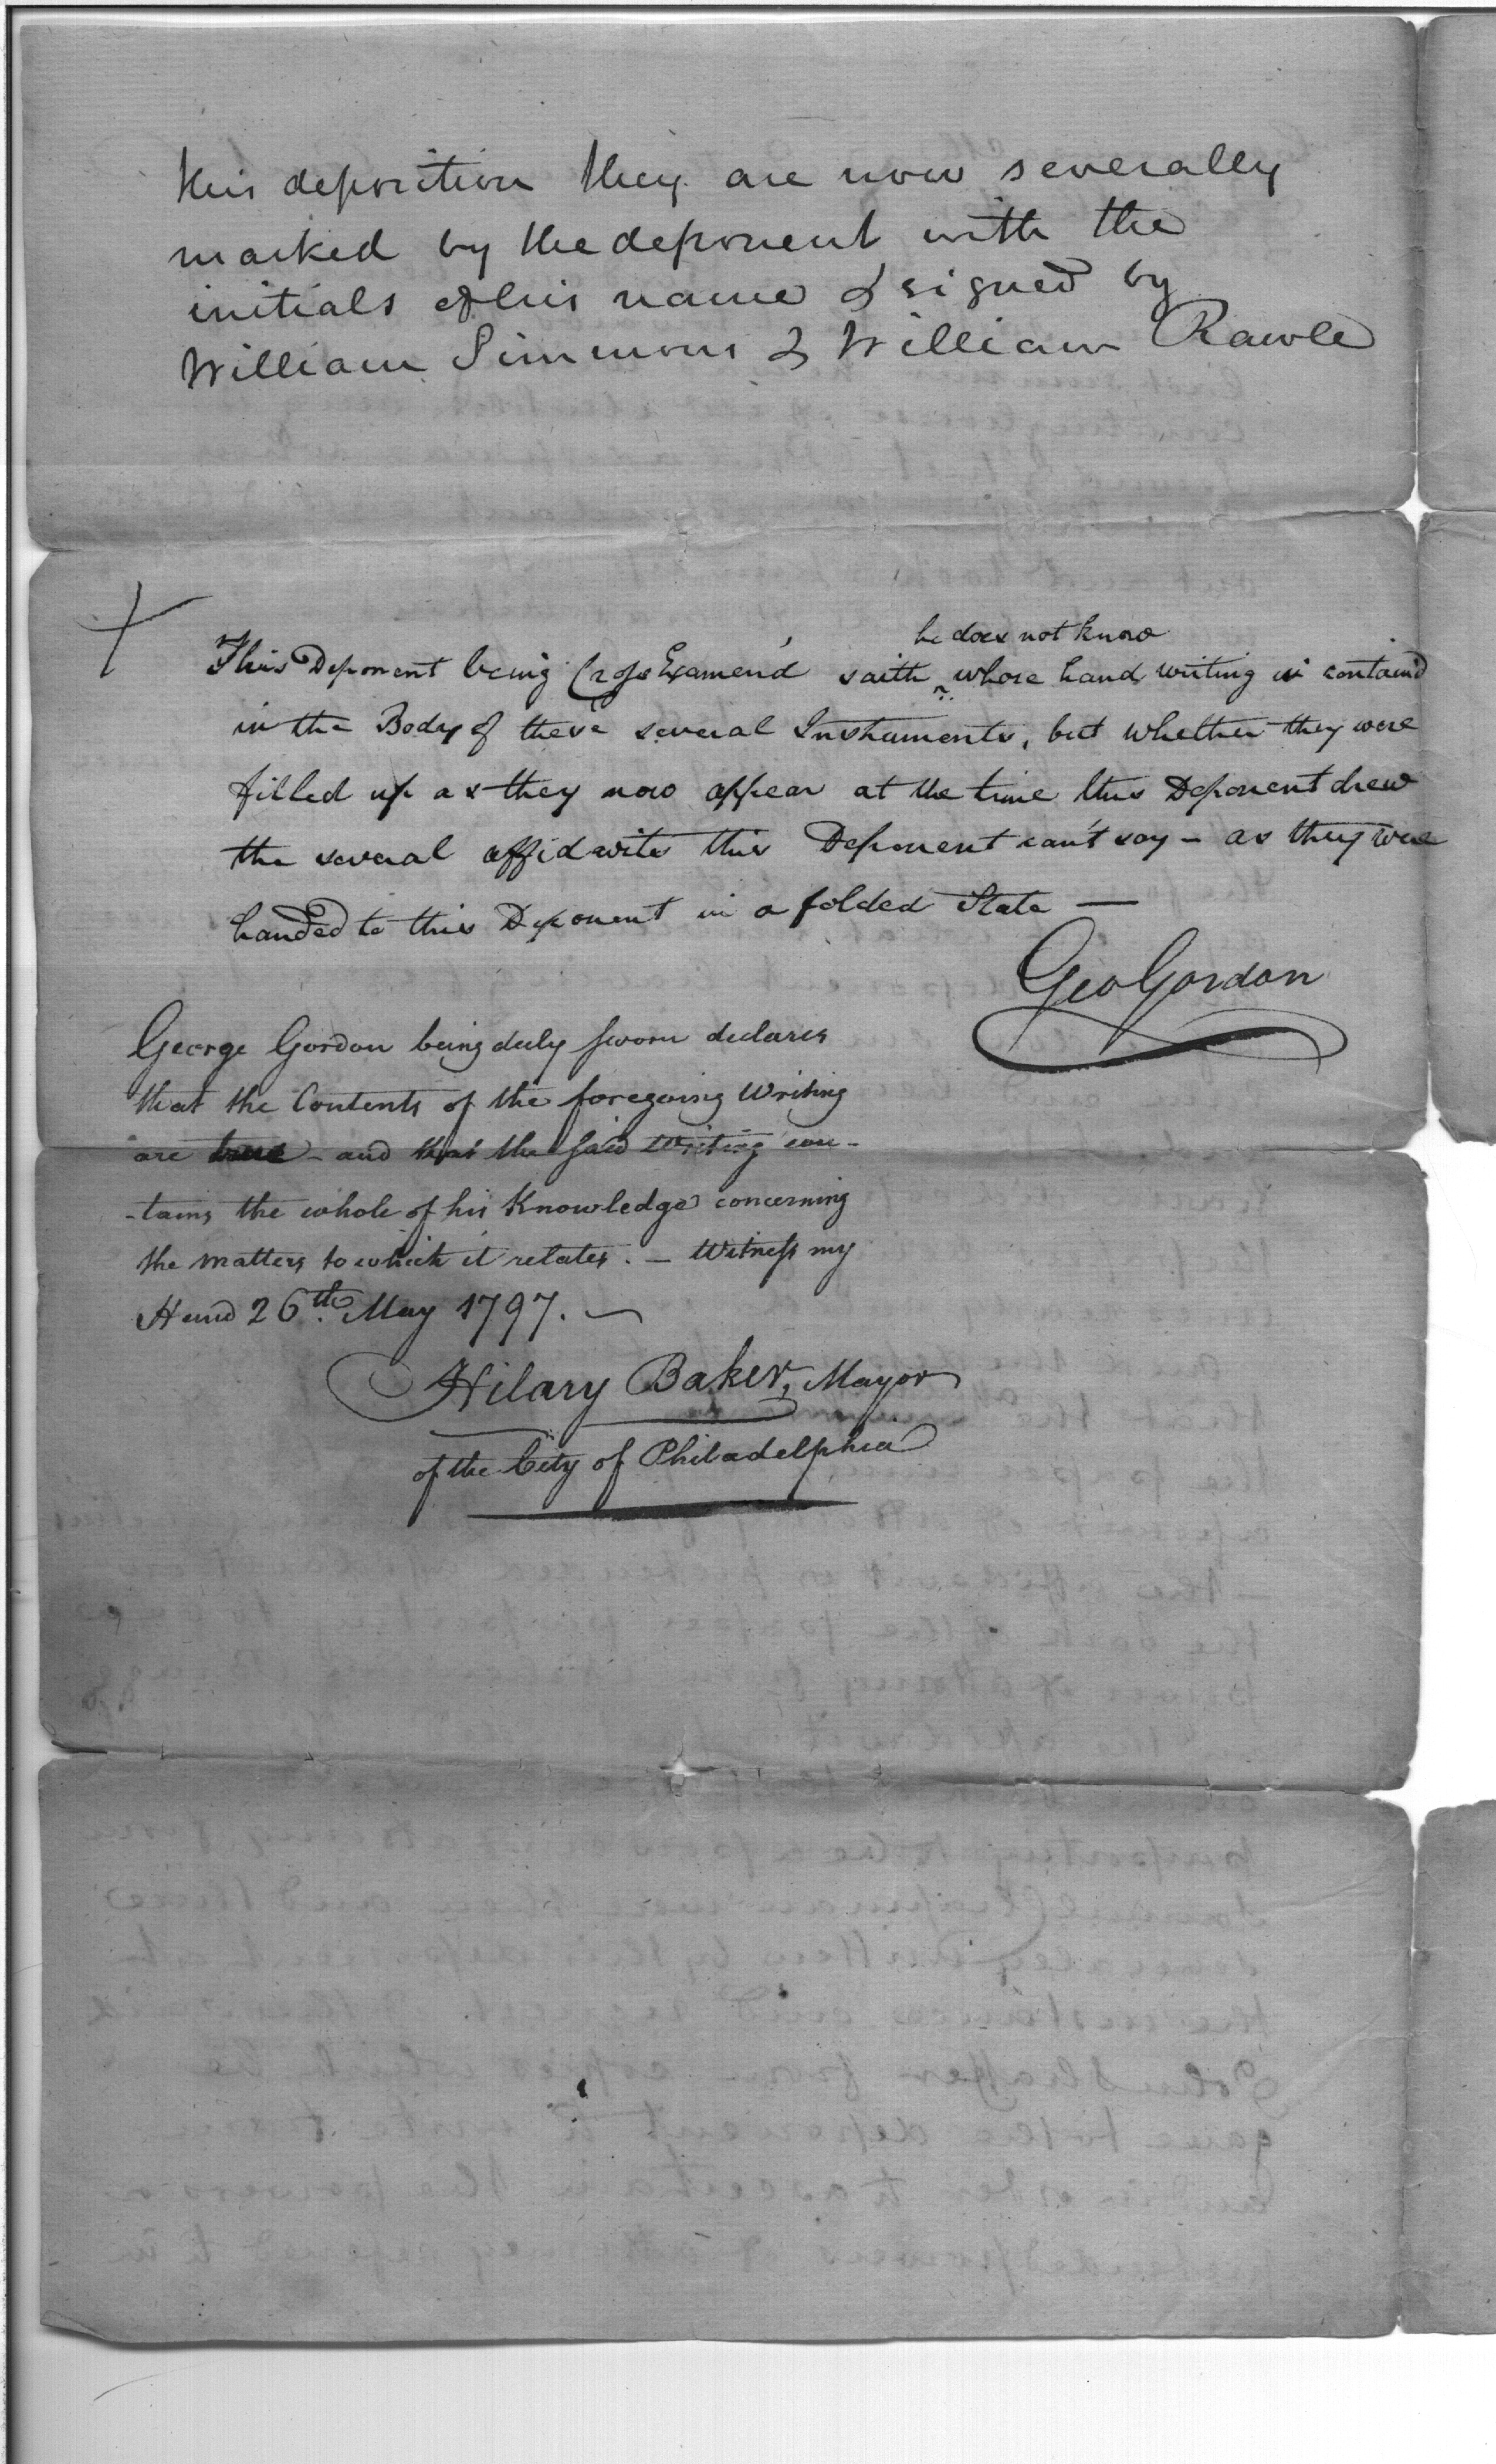 this deposition they are now severally
marked by the deponent with the
initials of his name & signed by
William Simmons & William Rawle
he does not know
This Deponent being Cross Examen'd saith ^ whose hand writing is contain'd
in the Body of these several Instruments, but whether they were
filled up as they now appear at the time this Deponent drew
the several affidavits this Deponent can't say - as they were
handed to this Deponent in a folded State —
Geo Gordon
George Gordon being duly sworn declares
that the Contents of the foregoing Writing
are true - and that the said Writing con-
-tains the whole of his Knowledge concerning
the matters to which it relates. — Witness my
Hand 26th. May 1797. —
Hilary Baker, Mayor
of the City of Philadelphia